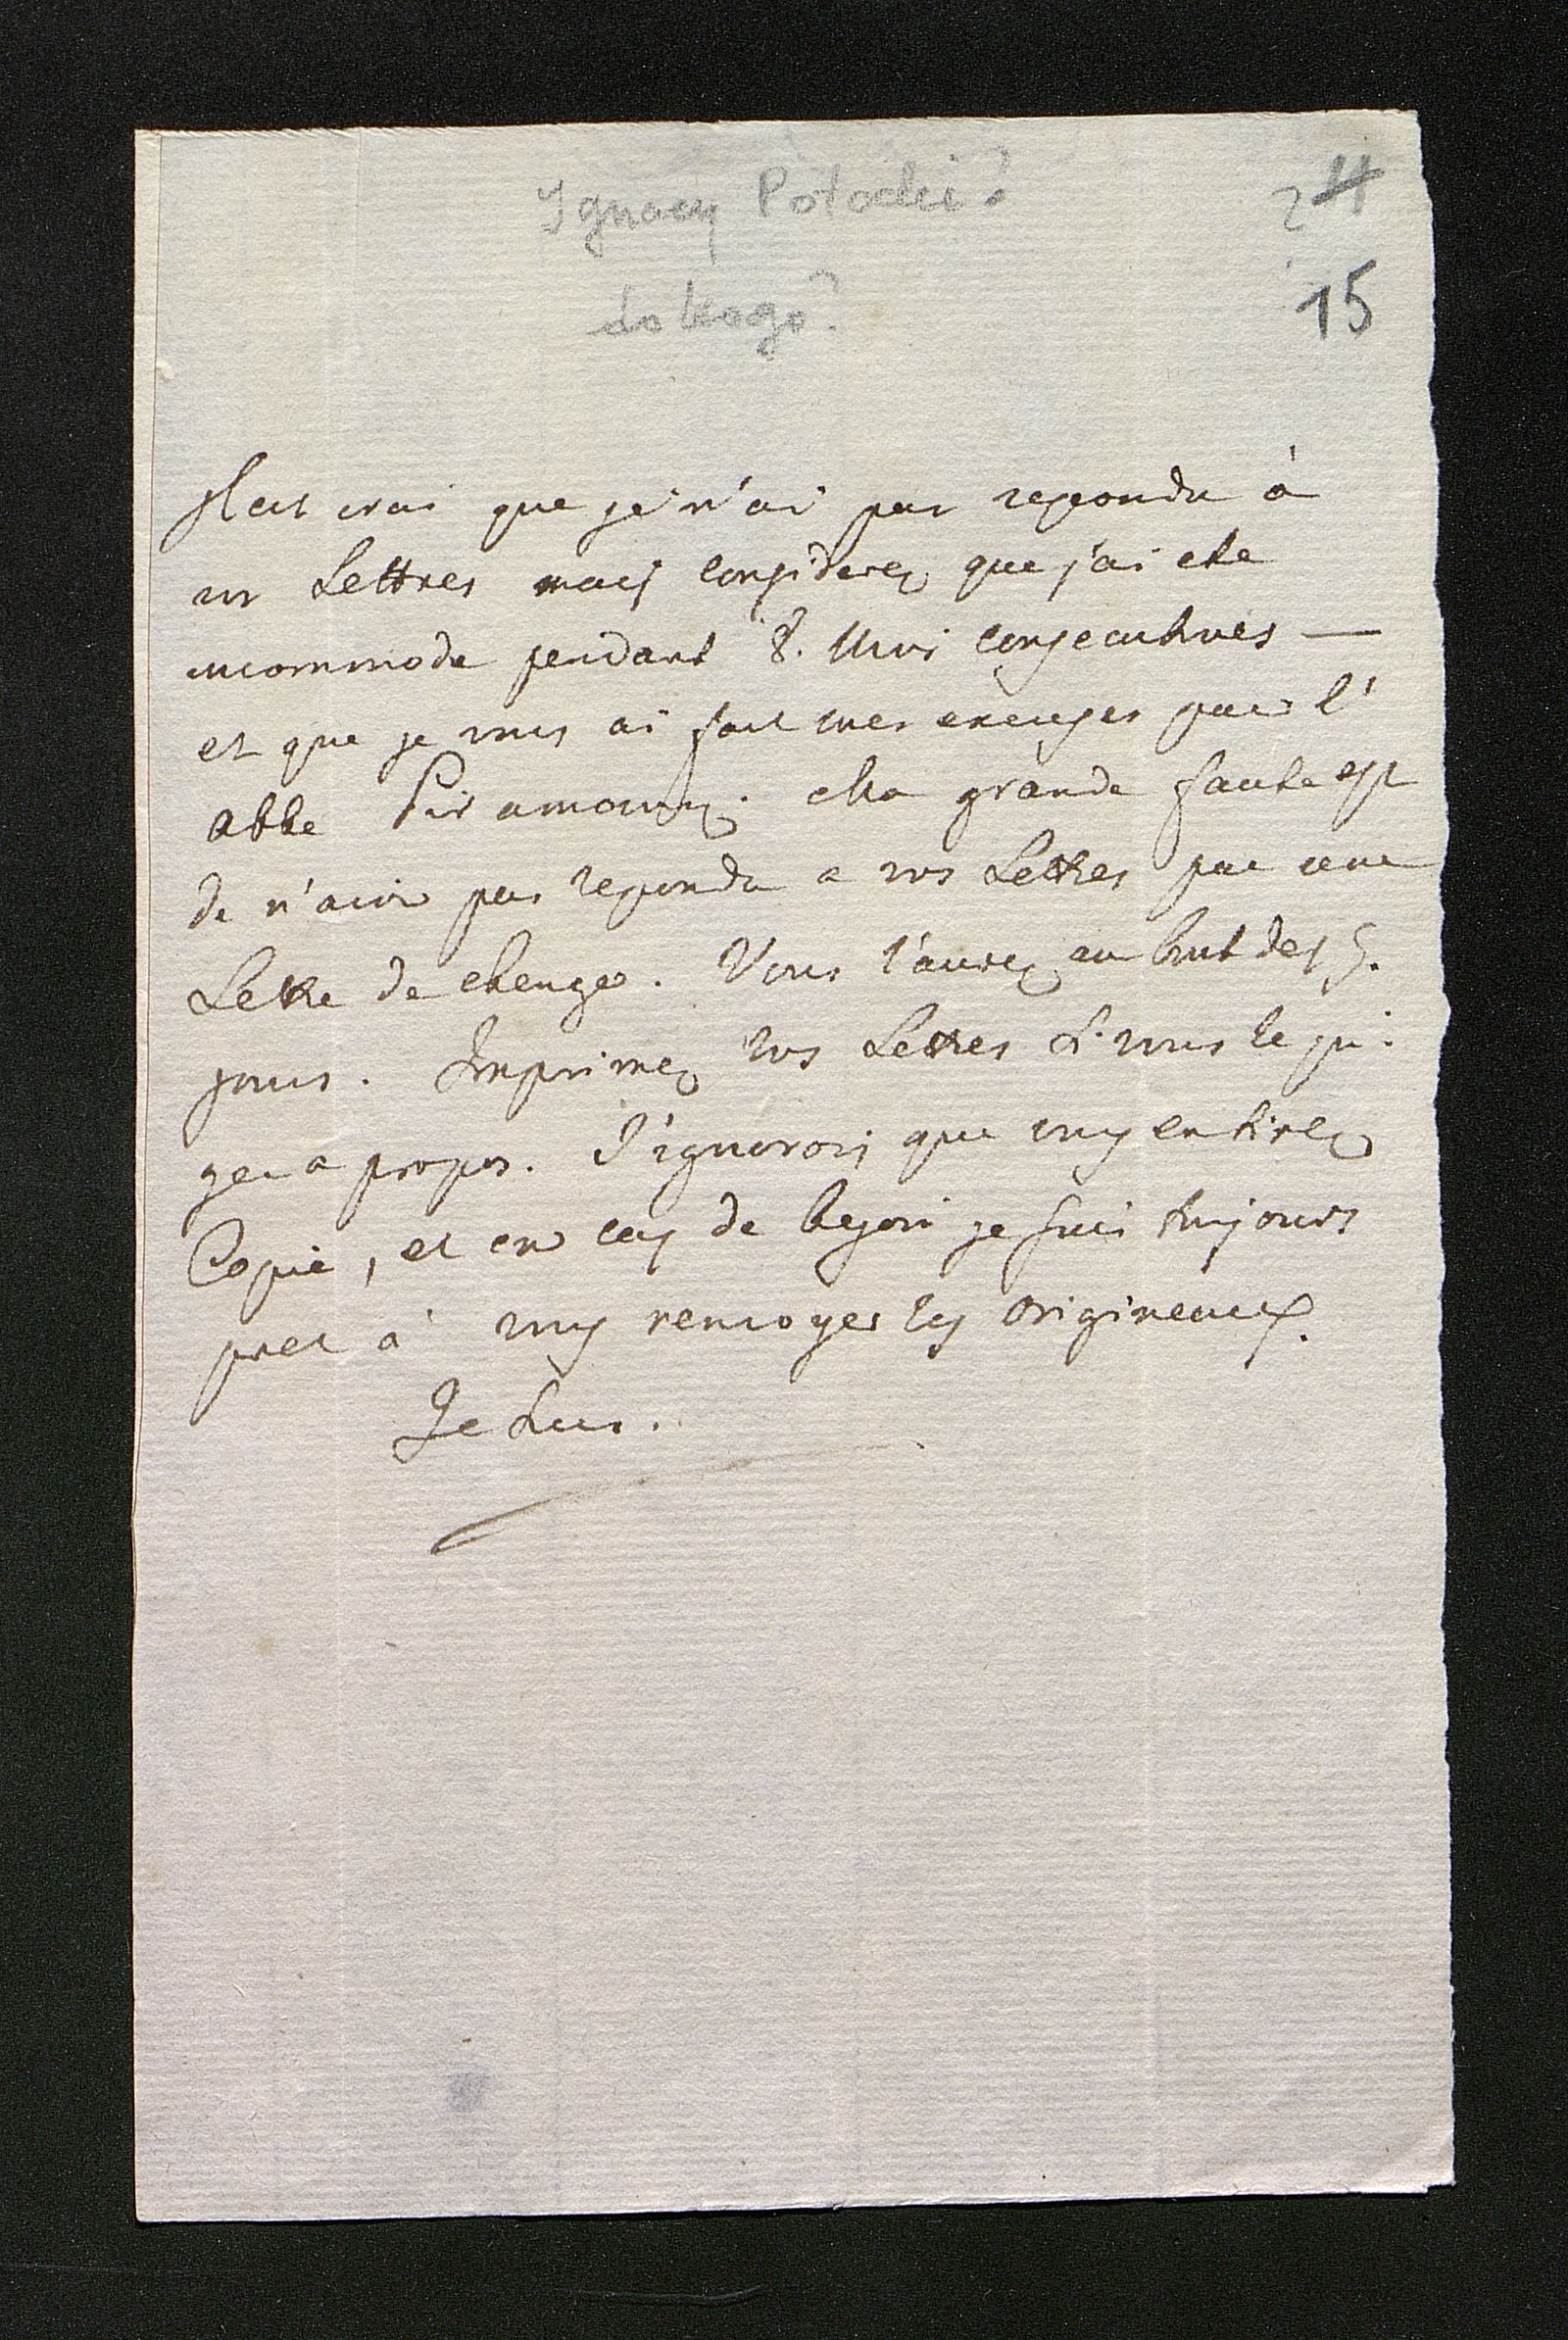 Ignacy Potocki?
2 11
do kogo?
15
Il est vrai que je n'ai pas repondu à
vos Lettres mais considerez que j'ai ete
incommode pendant 8. Mois consecutives —
et que je vous ai fait mes excuses par l'
abbe Piramowicz. Ma grande faute est
de n'avoir pas repondu a vos Lettres par une
Lettre de change. Vous l'aurez au bout de 15.
jours. Imprimez vos Lettres si vous le ju-
gez a propos. J'ignorois que vous en tirez
Copie, et en cas de besoin je suis toujours
pret à vous renvoyer les origineaux.
Je suis.